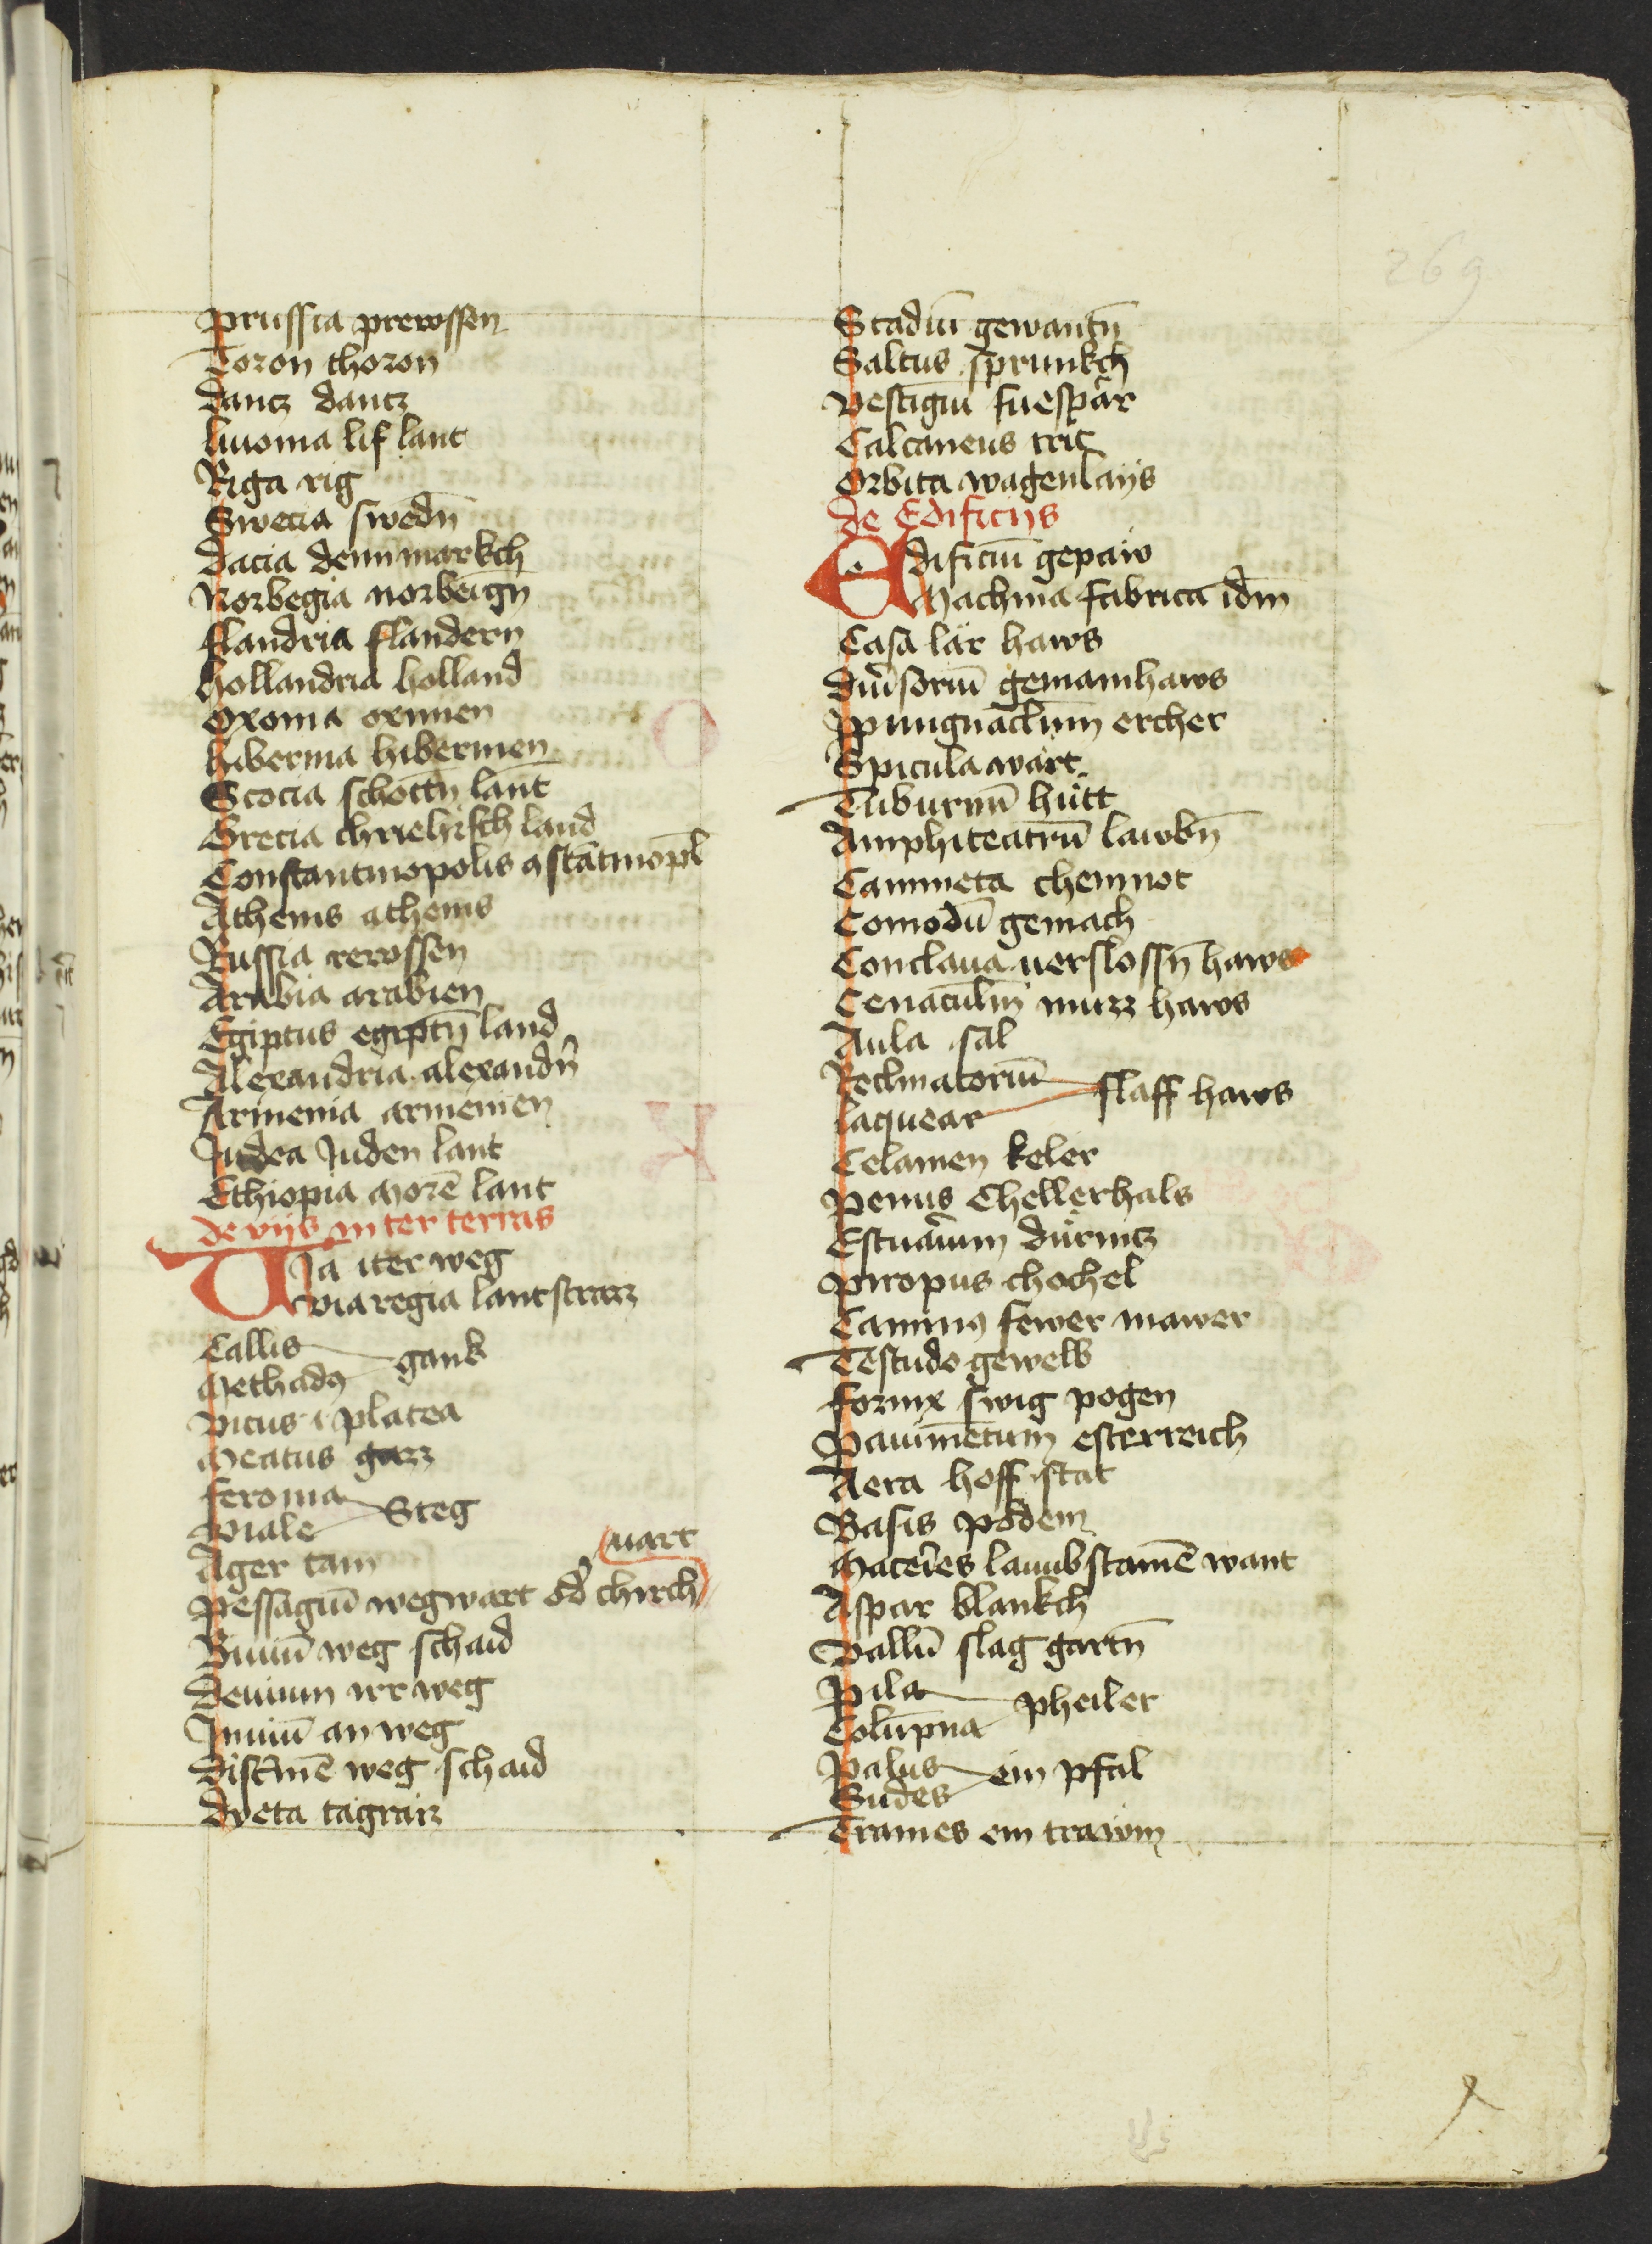 269
Prussia prewssen
Toron thoron
Dantz dantz
liuonia lif lant
Riga rig
Swecia swedn̄
Dacia dennmarkch
Norbegia norbeign
flandria flandern
hollandria holland
Oxonia oxinien
hibernia hibernien
Scocia schottn̄ lant
Grecia chriehisch land
Constantinopolis ꝯstātinopl̄
Athenis athenis
Russia rewssen
Arabia arabien
Egiptus egiptn̄ land
Alexandria alexandn̄
Armenia armenien
Judea Juden lant
Ethiopia Morē lant
de viis in ter terras
VIa iter weg
via regia lantstrazz
Callis
Methadꝯ gank
Vicus i platea
Meatus gazz
feronia
Viale Steg
Ager tam
wart
Pessagiū wegwart od̄ chirch
Biuiū weg schaid
Deuium irr weg
Inuiū an weg
Discīmē weg schaid
Dyeta tagraiz
Stadiū gewantn̄
Saltus sprunkch
Vestigiū fuespar
Calcaneus trit
Orbita wagenlays
de Edificijs
Edificiū gepaw
Machina fabrica idm̄
Casa lär haws
Diūsoriū gemainhaws
Ppungnaclūm ercher
Spicula wart
Tuburniū hütt
Amphiteatrū lawbn̄
Cammeta chemnot
Comodū gemach
Conclaua uerslossn̄ haws
Cenaculūm muzz haws
Aula sal
Reclinatoriū
laquear slaff haws
Celamen keler
Penus Chellerhals
Estuarium dürnitz
Piropus chochel
Caminꝯ fewer mawer
Testudo gewelb
fornix swig pogen
Pauimētum esterreich
Aera hoff stat
Basis podem
Maceries lawbstamē want
Aspar blankch
Vallū slag gartn̄
Pila
Colūpna pheiler
Palus
Sudes ein pfal
Trames ein trawm